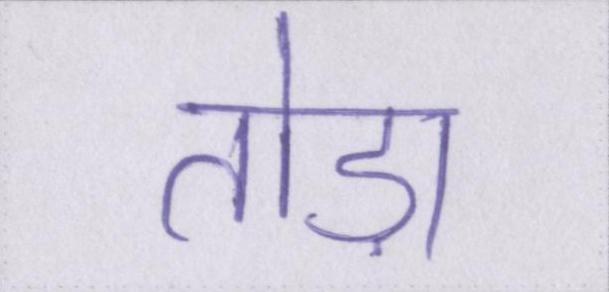 तोड़ा